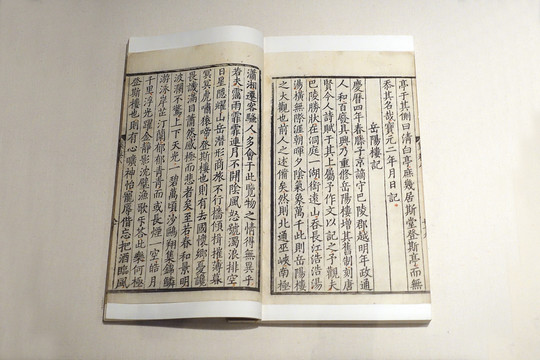 亭于其側曰清白亭庶幾居斯堂登斯亭而無
忝其名哉寶元二年月日記
岳陽樓記
慶曆四年春滕子京謫守巴陵郡越明年政通
人和百廢具興乃重修岳陽樓增其舊制刻唐
賢今人詩賦于其上屬予作文以記之予觀夫
巴陵勝狀在洞庭一湖銜遠山吞長江浩浩湯
湯橫無際涯朝暉夕陰氣象萬千此則岳陽樓
之大觀也前人之述備矣然則北通巫峽南極
瀟湘遷客騷人多會于此覽物之情得無異乎
若夫霪雨霏霏連月不開陰風怒號濁浪排空
日星隱曜山岳潛形商旅不行檣傾楫摧薄暮
冥冥虎嘯猿啼登斯樓也則有去國懷鄉憂讒
畏譏滿目蕭然感極而悲者矣至若春和景明
波瀾不驚上下天光一碧萬頃沙鷗翔集錦鱗
游泳岸芷汀蘭郁郁青青而或長煙一空皓月
千里浮光躍金靜影沈璧漁歌互答此樂何極
登斯樓也則有心曠神怡寵辱偕忘把酒臨風